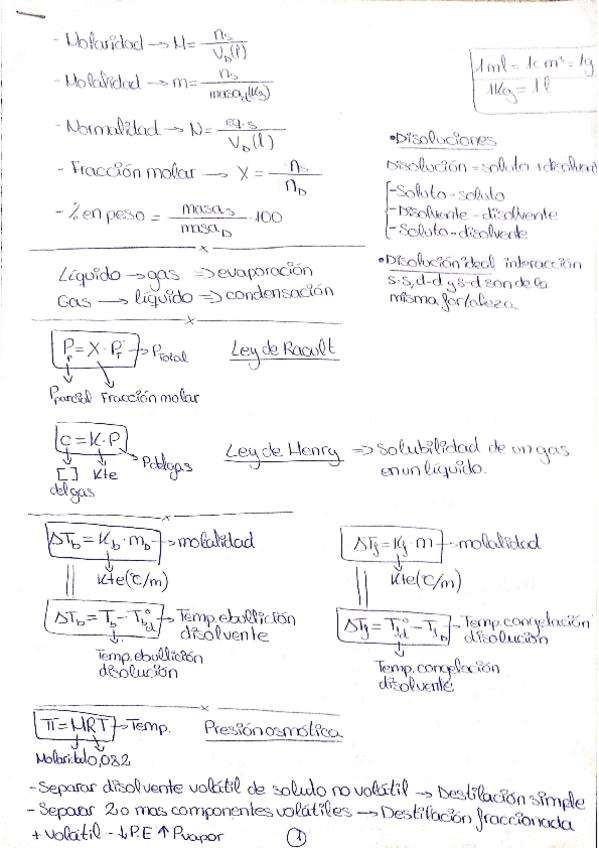 - Molaridad → M = ns / VD(l)
- Molalidad → m = ns / masad(Kg)
- Normalidad → N = eq.s / VD(l)
- Fracción molar → X = ns / nD
- % en peso = masas / masaD · 100
1ml = 1cm³ = 1g
1Kg = 1l
• Disoluciones
Disolución = soluto + disolvente
- Soluto - soluto
- Disolvente - disolvente
- Soluto - disolvente
• Disolución ideal interacción
s-s, d-d y s-d son de la
misma fortaleza.
Líquido → gas ⇒ evaporación
Gas → líquido ⇒ condensación
P = X · P → Ptotal Ley de Raoult
Pparcial Fracción molar
C = K · P → Pdelgas Ley de Henry ⇒ Solubilidad de un gas
en un líquido.
[ ] Kte
del gas
ΔTb = Kb · mD → molalidad
Kte (°C/m)
ΔTb = Tb - T°bd → Temp. ebullición
disolvente
Temp. ebullición
disolución
ΔTf = Kf · m → molalidad
Kte (°C/m)
ΔTf = T°fd - TfD → Temp. congelación
disolución
Temp. congelación
disolvente
π = MRT → Temp. Presión osmótica
Molaridad 0,082
- Separar disolvente volátil de soluto no volátil → Destilación simple
- Separar 2 o mas componentes volátiles → Destilación fraccionada
+ volátil - ↓P.E ↑Pvapor
1